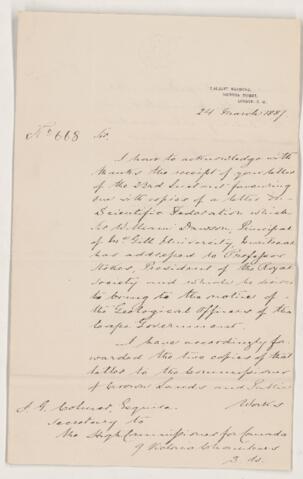 7 ALBERT MANSIONS,
VICTORIA STREET,
LONDON, S.W.
24 March 1887
No 668
Sir,
I have to acknowledge with
thanks the receipt of your letter
of the 22nd Instant favouring
me with copies of a letter on
Scientific Federation which
Sir William Dawson, Principal
of McGill University, Montreal
has addressed to Professor
Stokes, President of the Royal
Society and which he desires
to bring to the notice of
the Geological Officers of the
Cape Government.
I have accordingly for-
warded the two copies of that
letter to the Commissioner
of Crown Lands and Public
Works
J. G. Colmer, Esquire.
Secretary to
the High Commissioner for Canada
9 Victoria Chambers
S.W.